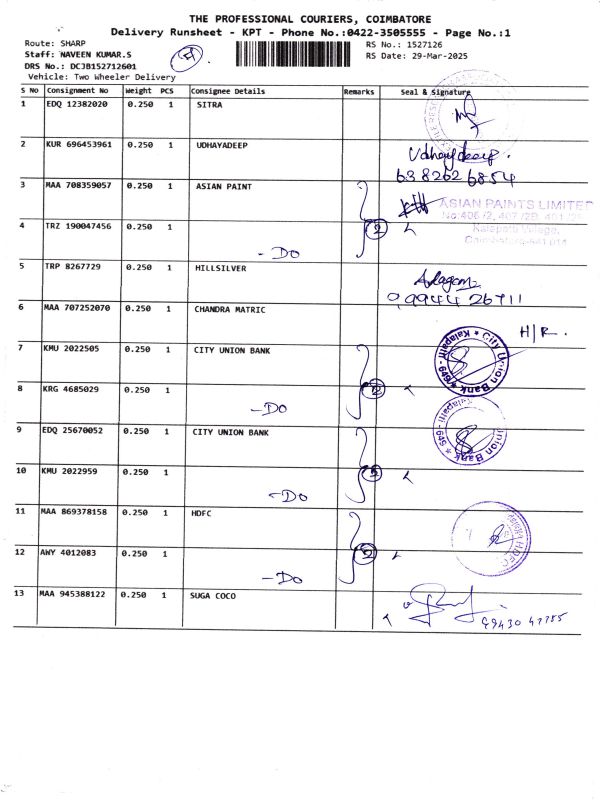 THE PROFESSIONAL COURIERS, COIMBATORE
Delivery Runsheet - KPT - Phone No.:0422-3505555 - Page No.:1
Route: SHARP
RS No.: 1527126
Staff: NAVEEN KUMAR.S
RS Date: 29-Mar-2025
DRS No.: DCJB152712601
Vehicle: Two Wheeler Delivery
S No Consignment No Weight PCS Consignee Details Remarks Seal & Signature
1 EDQ 12382020 0.250 1 SITRA
2 KUR 696453961 0.250 1 UDHAYADEEP
Udhayadeep.
638262 6854
3 MAA 708359057 0.250 1 ASIAN PAINT
ASIAN PAINTS LIMITED
No:406/2, 407/2B, 401/2B
4 TRZ 190047456 0.250 1
2
Kalapatti Village,
Coimbatore-641 014
- DO
5 TRP 8267729 0.250 1 HILLSILVER
99944 26711
6 MAA 707252070 0.250 1 CHANDRA MATRIC
H/R.
7 KMU 2022505 0.250 1 CITY UNION BANK
City Union Bank * Kalapatti - 649 *
8 KRG 4685029 0.250 1
2
- DO
9 EDQ 25670052 0.250 1 CITY UNION BANK
Union Bank * 649 - Kalapatti
10 KMU 2022959 0.250 1
2
- DO
11 MAA 869378158 0.250 1 HDFC
HDFC
12 AWY 4012083 0.250 1
2
- DO
13 MAA 945388122 0.250 1 SUGA COCO